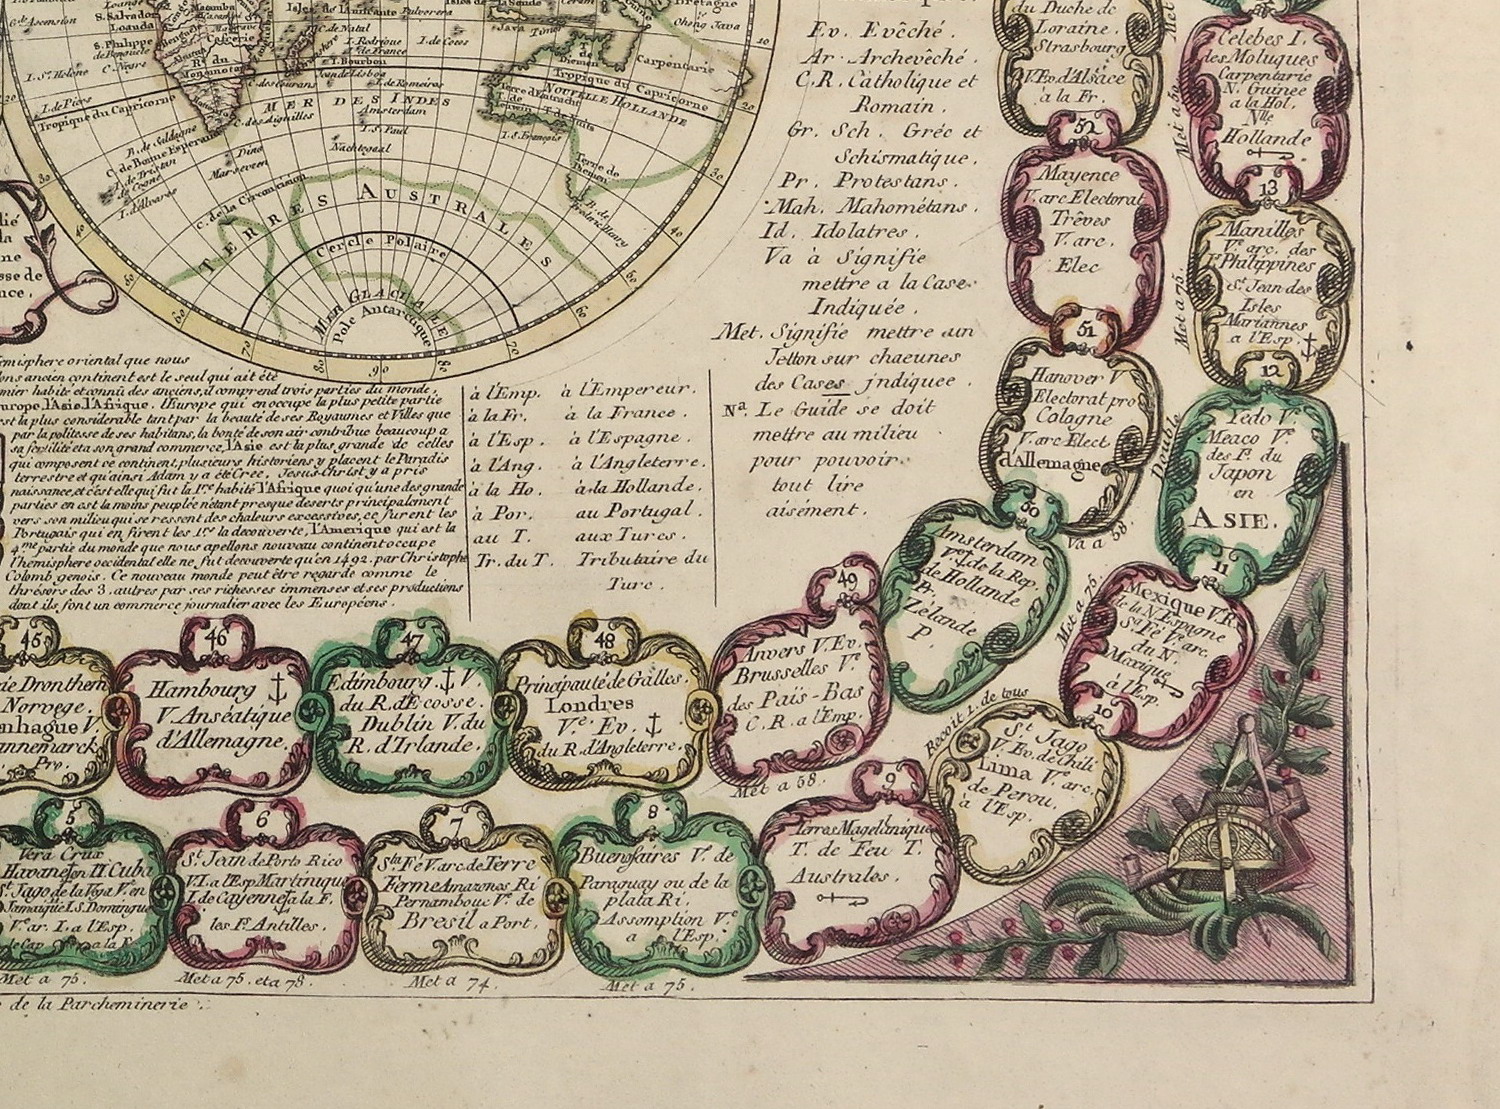 I. Ascension
S. Salvador
Loanda
S. Philippe
de Benguele
C. Negre
I. St. Helene
I. de Pices
Tropique du Capricorne
Matamba
Cafrerie
R. du
Monomota
I. Rodrigue
I. de France
I. Bourbon
I. de Cocos
I. de Romeiros
MER DES INDES
C. des Aiguilles
Amsterdam
I. S. Paul
Nachtegaal
Java Timor
T. de
Diemen
Carpentarie
Tropique du Capricorne
NOUVELLE HOLLANDE
Terre d'Entracht
T. de Nuits
I. S. François
Terre de
Diemen
B. de
Frederic Henry
B. de Saldagne
C. de Bonne Esperance
I. de Tristan
de Cogna
I. d'Alvares
Dina
Marseven
C. de la Circoncision
TERRES AUSTRALES
Cercle Polaire
MER GLACIALE
Pole Antarctique
emisphere oriental que nous
ons ancien continent est le seul qui ait été
mier habité et connû des anciens, il comprend trois parties du monde,
urope l'Asie l'Afrique. l'Europe qui en occupe la plus petite partie
est la plus considerable tant par la beauté de ses Royaumes et Villes que
par la politesse de ses habitans, la bonté de son air contribue beaucoup a
sa fertilité et a son grand commerce, l'Asie est la plus grande de celles
qui composent ce continent, plusieurs historiens y placent le Paradis
terrestre et qu'ainsi Adam y a été Créé. Jesus-Christ y a pris
naissance, et c'est elle qui fut la 1re habité l'Afrique quoi qu'une des grande
parties en est la moins peuplée n'etant presque deserts principalement
vers son milieu qui se ressent des chaleurs excessives, ce furent les
Portugais qui en firent les 1rs la decouverte, l'Amerique qui est la
4me partie du monde que nous apellons nouveau continent occupe
l'hemisphere occidental elle ne fut decouverte qu'en 1492. par Christophe
Colomb genois. Ce nouveau monde peut être regardé comme le
thrésors des 3. autres par ses richesses immenses et ses productions
dont ils font un commerce journalier avec les Européens.
à l'Emp. à l'Empereur.
à la Fr. à la France.
à l'Esp. à l'Espagne.
à l'Ang. à l'Angleterre.
à la Ho. à la Hollande.
à Por. au Portugal.
au T. aux Turcs.
Tr. du T. Tributaire du
Turc.
Ev. Evêché.
Ar. Archevêché.
C.R. Catholique et
Romain.
Gr. Sch. Gréc et
Schismatique.
Pr. Protestans.
Mah. Mahométans.
Id. Idolatres.
Va à Signifie
mettre a la Case
Indiquée.
Met. Signifie mettre un
Jetton sur chacunes
des Cases jndiquée.
Na. Le Guide se doit
mettre au milieu
pour pouvoir
tout lire
aisément.
du Duche de
Loraine.
Strasbourg
V. Ev. d'Alsace
à la Fr.
52
Mayence
V. arc Electorat
Trêves
V. arc.
Elec
51
Hanover V
Electorat pro
Cologne
V. arc Elect
d'Allemagne
Va a 58.
50
Amsterdam
de la Rep
de Hollande
Pr.
Zélande
P.
49
Anvers V. Ev.
Brusselles Ve
des Païs-Bas
C.R. a l'Emp.
Met a 58.
48
Principauté de Galles.
Londres
Ve Ev.
du R. d'Angleterre.
47
Edimbourg. V.
du R. d'Ecosse.
Dublin V. du
R. d'Irlande.
46
Hambourg
V. Anséatique
d'Allemagne.
45
ie Dronthem
Norvege.
nhague V.
annemarck
Pro.
Celebes I.
des Moluques
Carpentarie
N. Guinee
a la Hol.
Nlle
Hollande
13
Manilles
Ve arc. des
Philippines
St Jean des
Isles
Mariannes
a l'Esp.
Met a 75.
12
Yedo V.
Meaco Ve
des I. du
Japon
en
ASIE.
Double
11
Mexique V.R.
de la N. Espagne
Sta Fé Ve arc.
du N.
Mexique
à l'Esp.
Met a 75
10
St Jago
V. Ev. de Chili
Lima Ve arc.
de Perou.
à l'Esp.
Recoit 1. de tous
9
Terres Magellanique
T. de Feu T.
Australes.
8
Buenosaires Ve de
Paraguay ou de la
plata Ri.
Assomption Ve
a l'Esp.
Met a 75.
7
Sta Fé V. arc de Terre
Ferme Amazones Ri
Pernambouc Ve de
Bresil a Port.
Met a 74.
6
St Jean de Porto Rico
V. I. a l'Esp Martinique
I. de Cayenne a la F.
les I. Antilles.
Met a 75. et a 78.
5
Vera Crux
Havane en II. Cuba
St Jago de la Vega Ve en
Jamaique I.S. Domingue
Ve ar. I. a l'Esp.
le Cap a la F.
Met a 75.
de la Parcheminerie.